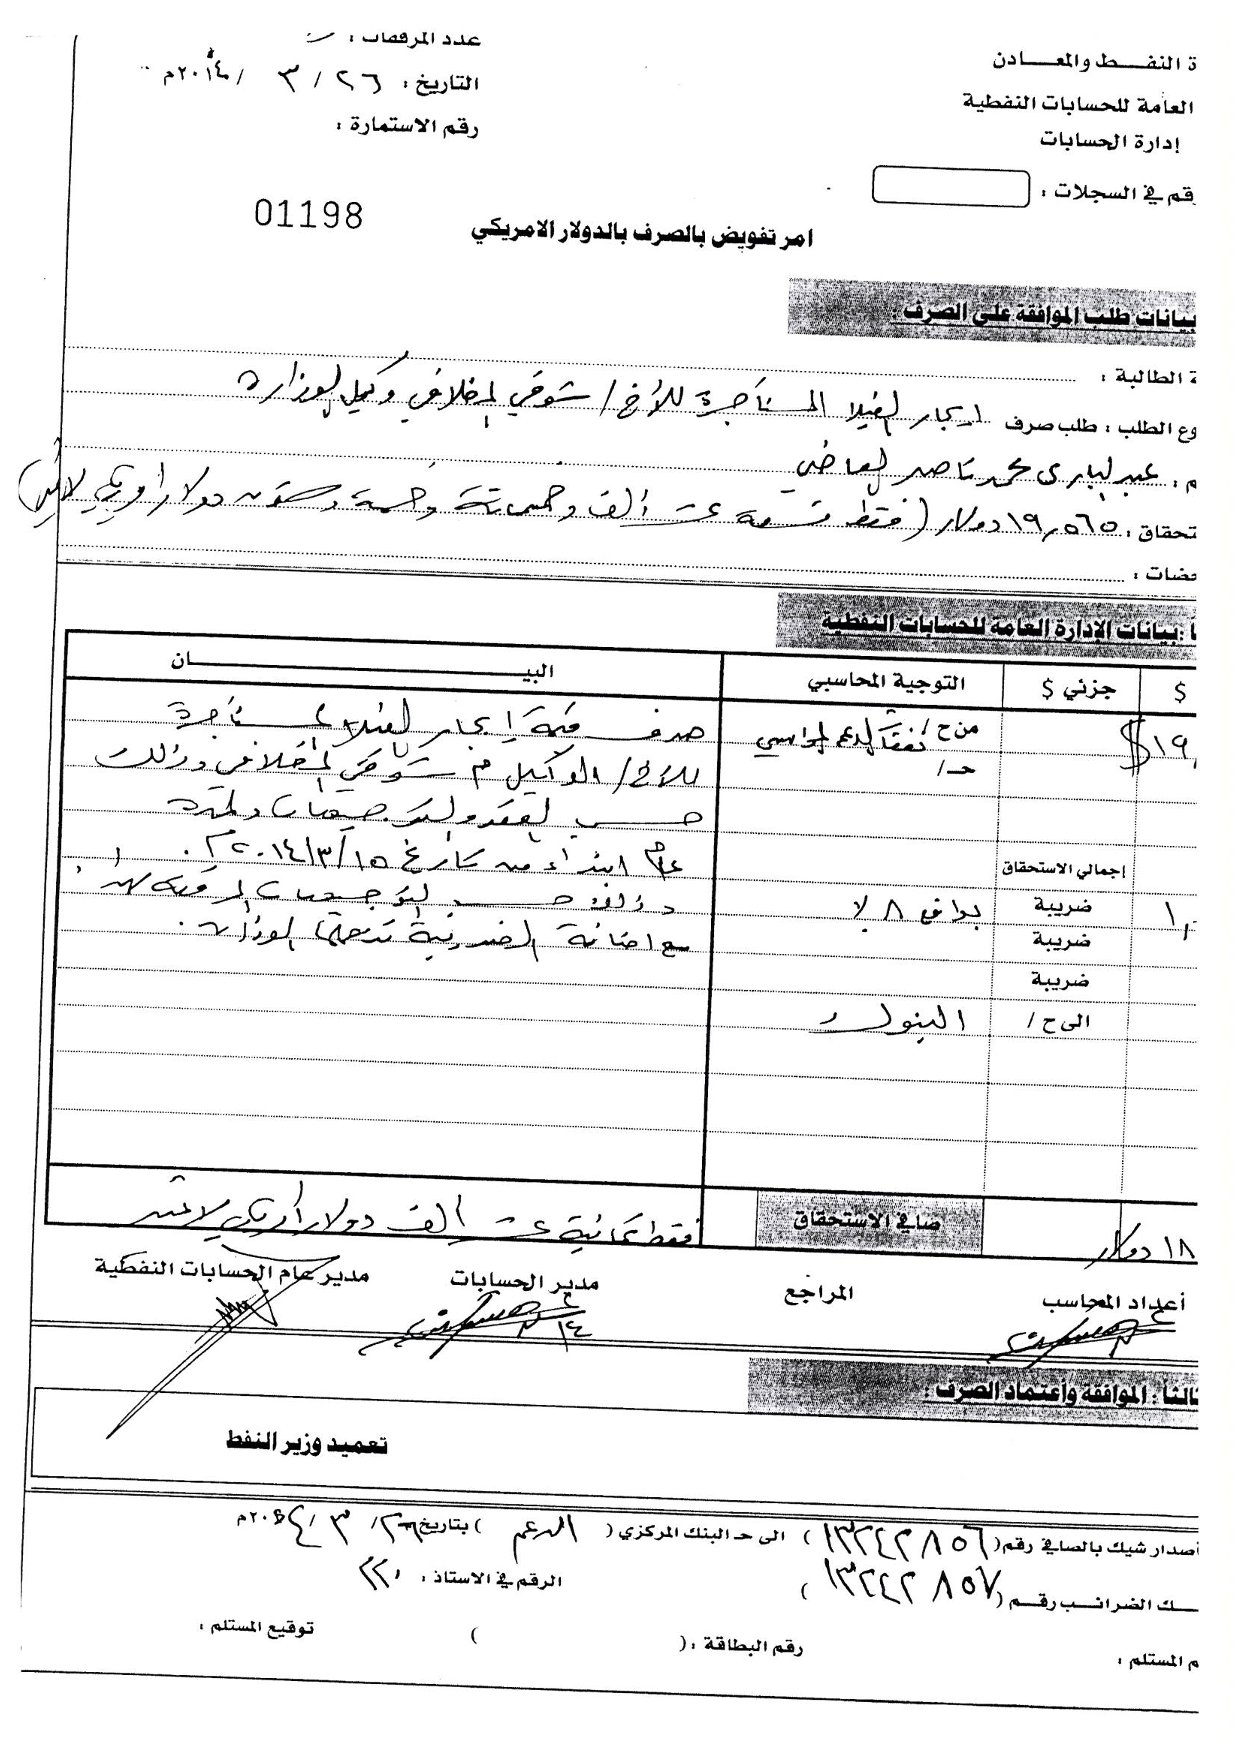 ة النفــــط والمعــــادن
العامة للحسابات النفطية
إدارة الحسابات
قم في السجلات :
عدد المرفقات :
التاريخ : ٢٦ / ٣ / ٢٠١٤م
رقم الاستمارة :
01198
امر تفويض بالصرف بالدولار الامريكي
بيانات طلب الموافقة على الصرف :
ة الطالبة :
وع الطلب : طلب صرف ايجار الفيلا المستأجرة للأخ / شوقي المخلافي وكيل الوزارة
م : عبدالباري محمد ناصر القاضي
تحقاق : ١٩,٥٦٥ دولار (فقط تسعة عشر ألف وخمسمائة وخمسة وستون دولار أمريكي لاغير)
حضات :
ا : بيانات الإدارة العامة للحسابات النفطية
$ جزئي $ التوجية المحاسبي البيـــــــــــــان
١٩, $ من ح / نفقات الدعم المؤسسي صرف قيمة إيجار الفيلا المستأجرة
حـ/ للأخ / الوكيل م شوقي المخلافي وذلك
حسب العقد والتوجيهات ولمدة
عام ابتداء من تاريخ ١٥/٣/٢٠١٤م.
إجمالي الاستحقاق
١, ضريبة بواقع ٨٪ وذلك حسب التوجيهات المرفقة بهذا.
ضريبة مع اضافة الضريبة تتحملها الوزارة.
ضريبة
الى ح / البنوك
١٨ دولار صافي الاستحقاق فقط ثمانية عشر ألف دولار أمريكي لاغير
أعداد المحاسب المراجع مدير الحسابات مدير عام الحسابات النفطية
ثالثا : الموافقة وأعتماد الصرف :
تعميد وزير النفط
أصدار شيك بالصافي رقم( ١٣٢٤٢٨٥٦ ) الى حـ البنك المركزي ( الدعم ) بتاريخ ٢٦ / ٣ / ٢٠١٤م
ـــك الضرائـب رقـم ( ١٣٢٤٢٨٥٧ ) الرقم في الاستاذ : ٢٢٠
م المستلم : رقم البطاقة : ( ) توقيع المستلم :